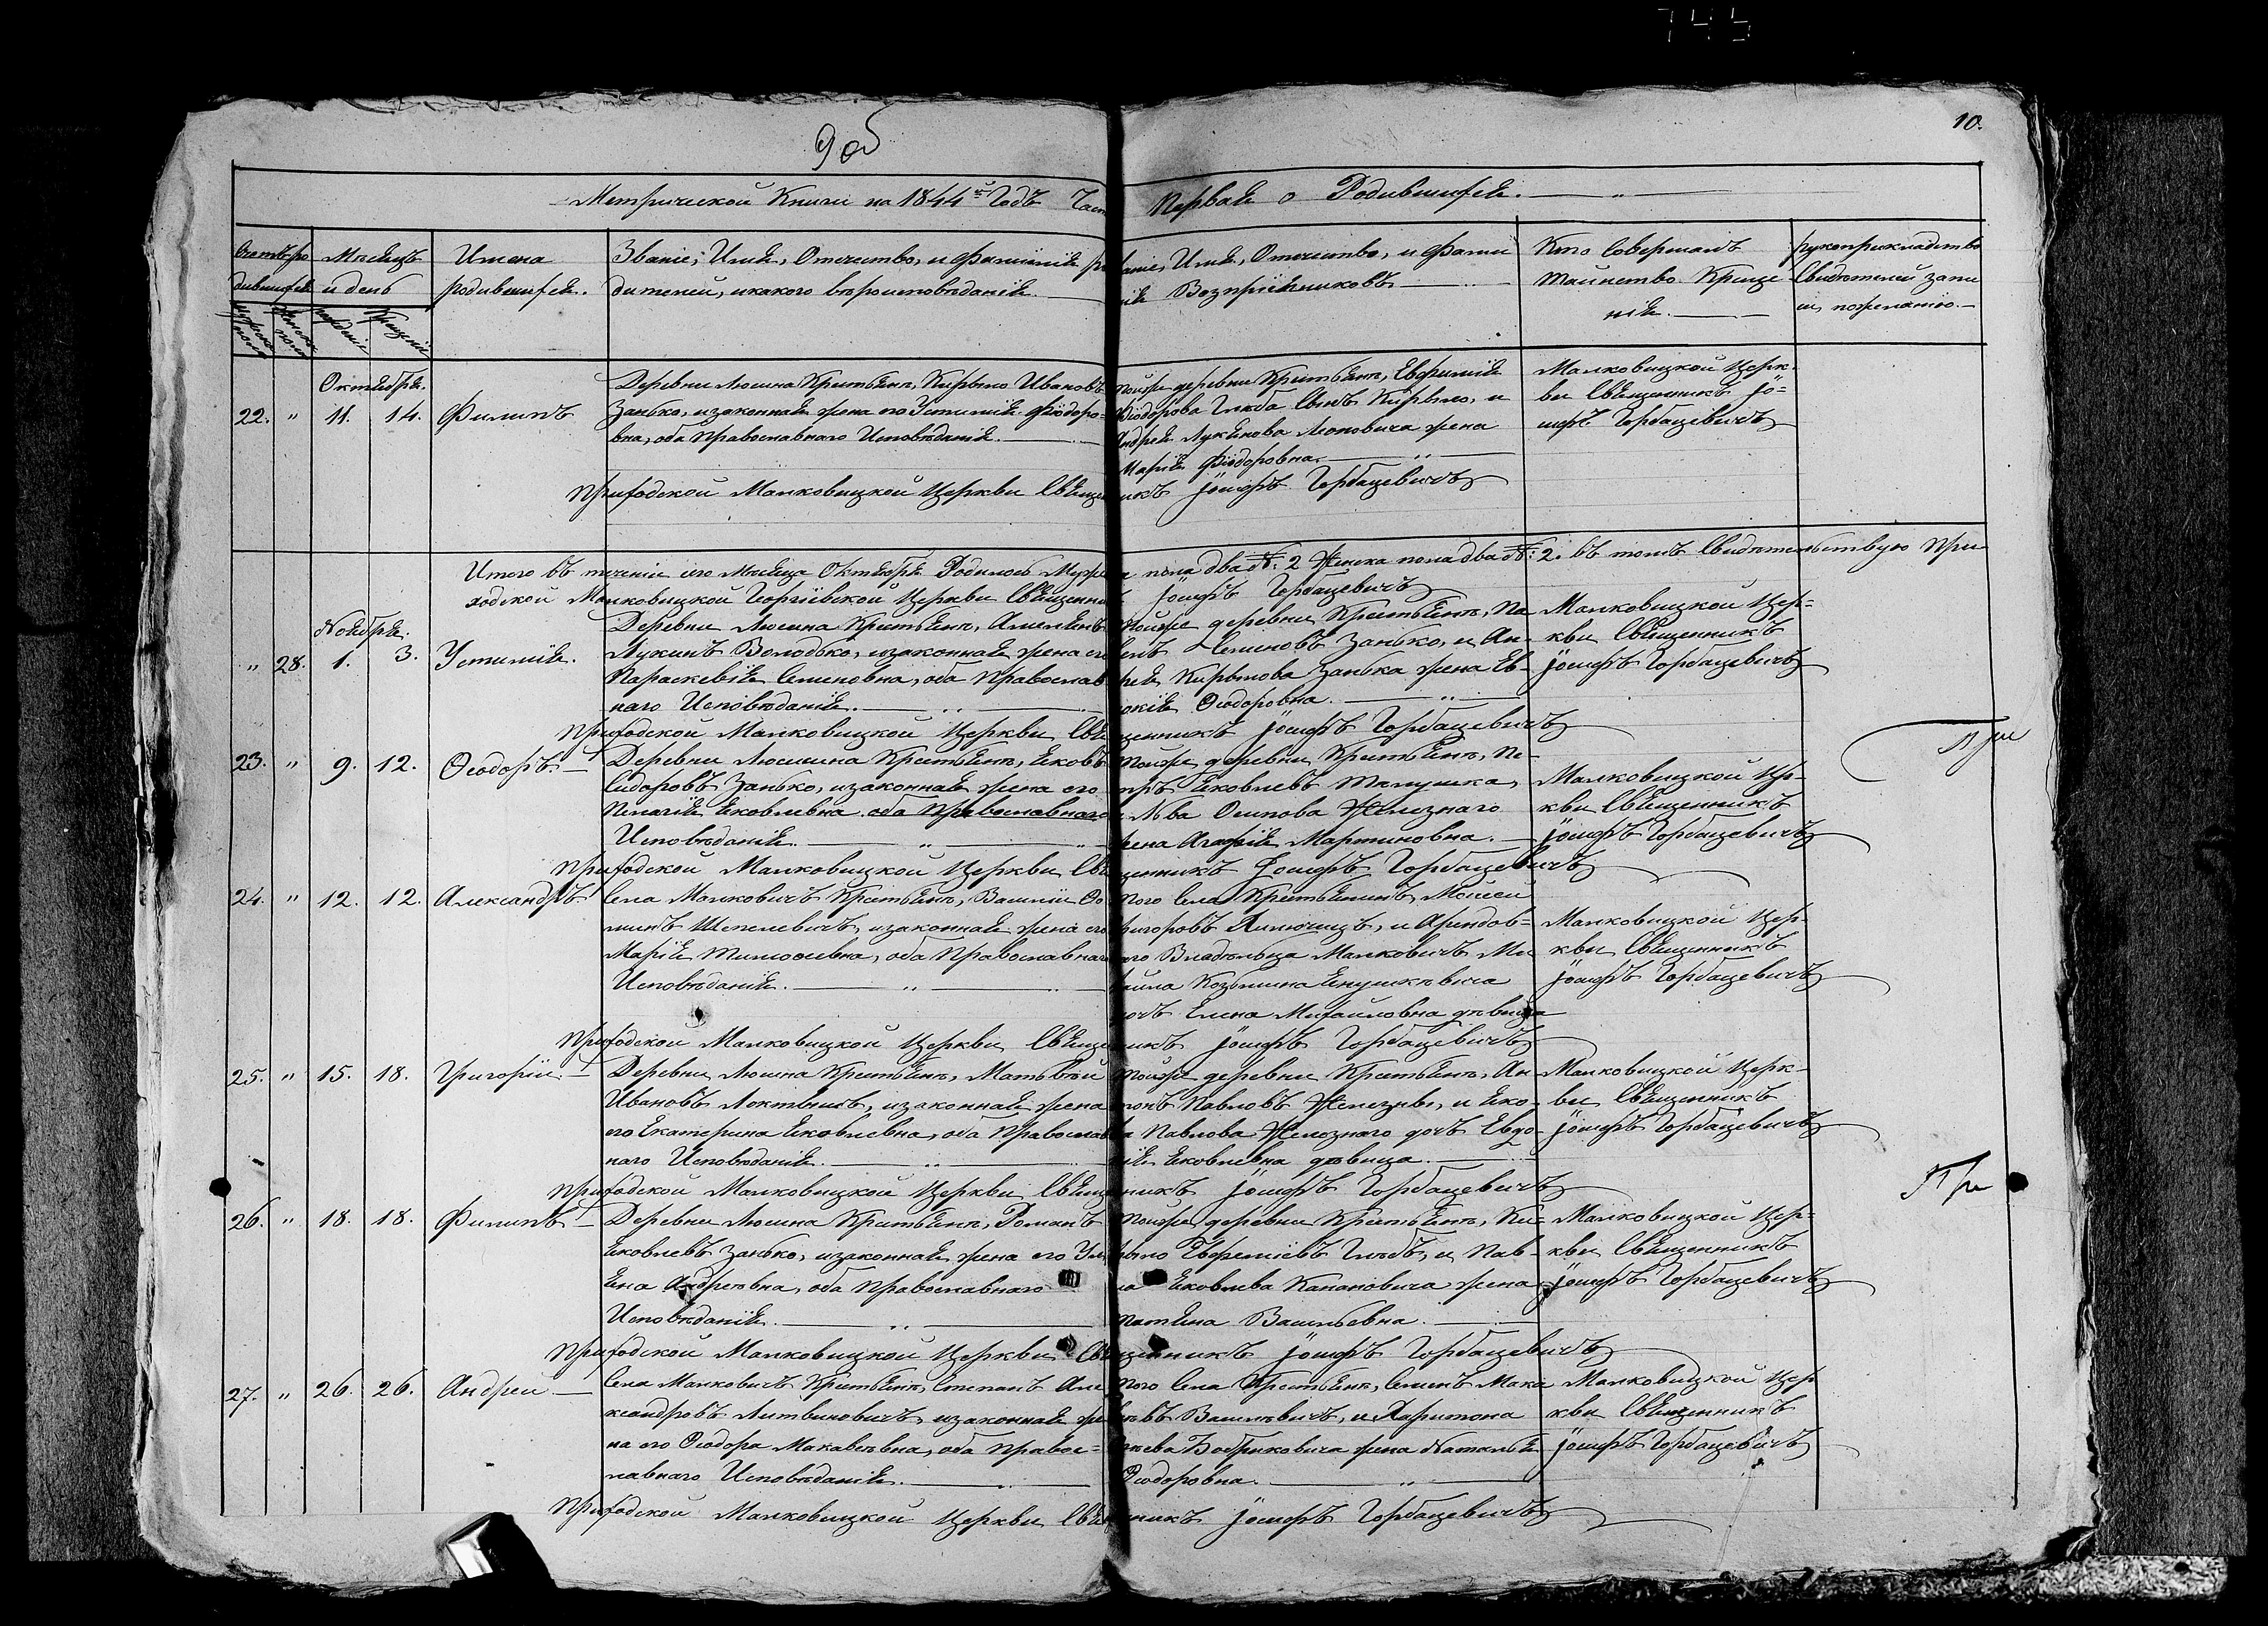 745
9 об
10.
Метрической Книги на 1844й Годъ Част Первая о Родившихся.
Счетъ родившихся
Мѣсяцъ и день
Имена родившихся.
Званіе, Имя, Отечество, и Фамилія родителей, и какого вѣроисповѣданія.
Званіе, Имя, Отечество, и Фамилія Воспріемниковъ
Кто Совершалъ таинство Крещенія.
рукоприкладство Свидѣтелей записи по желанію.
мужеска пола
женска пола
рожденіе
Крещеніе
Октября.
22. " 11. 14. Филипъ
Деревни Люсина Крестьянъ, Кирыло Ивановъ
Занько, и законная жена его Устинія Фіодоро=
вна, оба Православнаго Исповѣданія.
тойже деревни Крестьянъ, Евфимія
Фіодорова Глѣба Сынъ Кирыло, и
Андрея Лукянова Леоновича жена
Марія Фіодоровна.
Малковицкой Церк-
ви Священникъ Іо=
сифъ Горбацевичъ
Приходской Малковицкой Церкви Священникъ Іосифъ Горбацевичъ
Итого въ теченіи сего Мѣсяца Октября Родилось Мужеска пола два №: 2 Женска пола два №: 2. въ томъ Свидѣтельствую При
ходской Малковицкой Георгіевской Церкви Священникъ Іосифъ Горбацевичъ
Ноября.
" 28. 1. 3. Устинія.
Деревни Люсина Крестьянъ, Амелянъ
Лукинъ Володько, и законная жена его
Параскевія Семеновна, оба Православ
наго Исповѣданія.
тойже деревни Крестьянъ, Па
велъ Семеновъ Занько, и Ан-
рея Кирылова Занька жена Ев-
докія Ѳеодоровна.
Малковицкой Цер=
кви Священникъ
Іосифъ Горбацевичъ
Приходской Малковицкой Церкви Священникъ Іосифъ Горбацевичъ
23. " 9. 12. Ѳеодоръ
Деревни Люсина Крестьянъ, Яковъ
Сидоровъ Занько, и законная жена его
Пелагія Яковлевна оба Православнаго
Исповѣданія.
тойже деревни Крестьянъ, Пе-
тръ Яковлевъ
и Льва Осипова Желѣзнаго
жена Агафія Мартиновна.
Малковицкой Цер-
кви Священникъ
Іосифъ Горбацевичъ
Приходской Малковицкой Церкви Священникъ Іосифъ Горбацевичъ
24. " 12. 12. Александръ
Села Малковичъ Крестьянъ, Василій Ѳо
минъ Шепелевичъ, и законная жена его
Марія Тимоѳеевна, оба Православнаго
Исповѣданія.
того Села Крестьянинъ, Моисей
Григоровъ и Арендов=
наго Владѣльца Малковичъ Ми
хаила Козьмина Янушкѣвича
дочъ Елена Михаиловна дѣвица
Малковицкой Цер-
кви Священникъ
Іосифъ Горбацевичъ
Приходской Малковицкой Церкви Священникъ Іосифъ Горбацевичъ
25. " 15. 18. Григорій.
Деревни Люсина Крестьянъ, Матьвѣй
Ивановъ и законная жена
его Екатерина Яковлевна, оба Православ
наго Исповѣданія.
тойже деревни Крестьянъ, Ан
тонъ Павловъ Желѣзны, и Яко-
ва Павлова Желѣзнаго дочъ Евдо
кія Яковлевна дѣвица.
Малковицкой Церк-
ви Священникъ
Іосифъ Горбацевичъ
Приходской Малковицкой Церкви Священникъ Іосифъ Горбацевичъ
26. " 18. 18. Филипъ
Деревни Люсина Крестьянъ, Романъ
Яковлевъ Занько, и законная жена его Ул
яна Андреевна, оба Православнаго
Исповѣданія.
тойже деревни Крестьянъ, Ки-
рыло Евфиміевъ Глѣбъ, и Пав-
ла Яковлева Канановича жена
Татяна Васильевна.
Малковицкой Цер=
кви Священникъ
Іосифъ Горбацевичъ
Приходской Малковицкой Церкви Священникъ Іосифъ Горбацевичъ
27. " 26. 26. Андрей
Села Малковичъ Крестьянъ, Степанъ Але
ксандровъ Литвиновичъ, и законная же
на его Ѳеодора Макавѣевна, оба Правос=
лавнаго Исповѣданія.
того Села Крестьянъ, Семенъ Мака
вѣевъ Василѣвичъ, и Харитона
Бобриковича жена Наталья
Ѳеодоровна.
Малковицкой Цер
кви Священникъ
Іосифъ Горбацевичъ
Приходской Малковицкой Церкви Священникъ Іосифъ Горбацевичъ